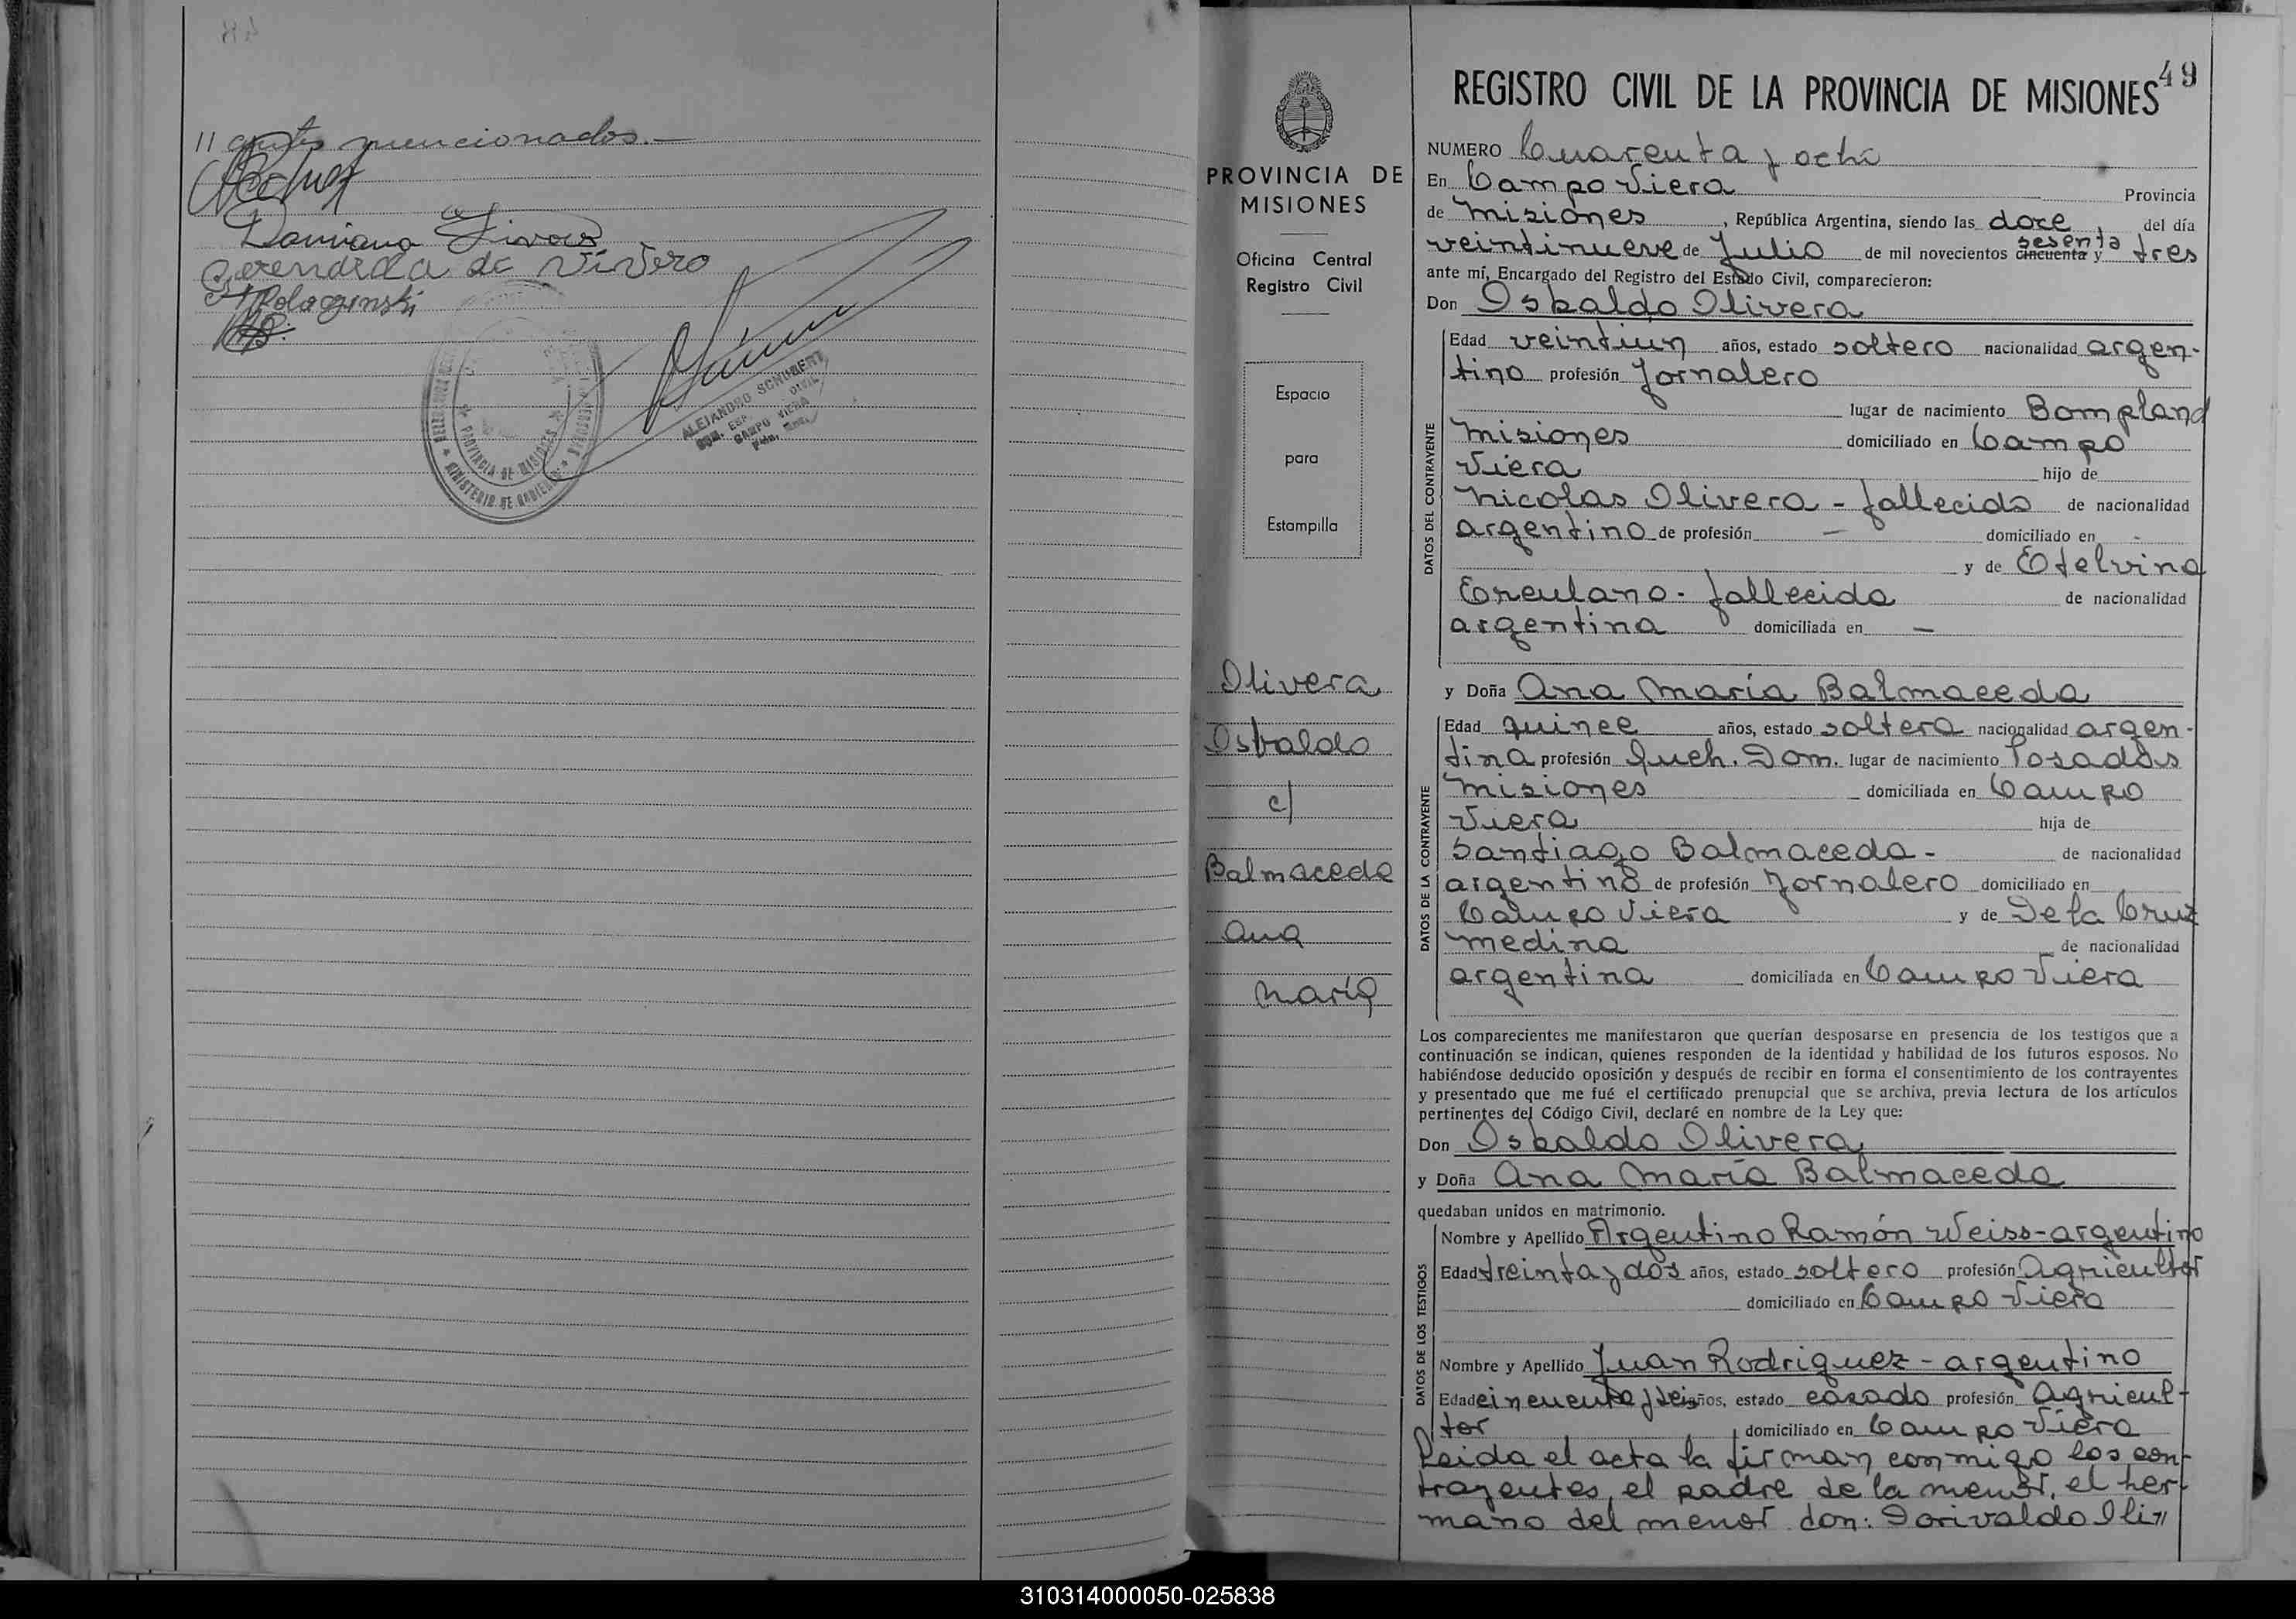 // antes mencionados.—
Gerendeda de Vivero
Rologinski
ALEJANDRO SCHUBERT
CAMPO VIERA
PROVINCIA DE MISIONES
MINISTERIO DE GOBIERNO
PROVINCIA DE
MISIONES
Oficina Central
Registro Civil
Espacio
para
Estampilla
Olivera
Osbaldo
c/
Balmaceda
Ana
María
49
REGISTRO CIVIL DE LA PROVINCIA DE MISIONES
NUMERO Cuarenta y ocho
En Campo Viera Provincia
de Misiones, República Argentina, siendo las doce, del día
veintinueve de Julio de mil novecientos cincuenta sesenta y tres
ante mí, Encargado del Registro del Estado Civil, comparecieron:
Don Osbaldo Olivera
DATOS DEL CONTRAYENTE
Edad veintiun años, estado soltero nacionalidad argen-
tino profesión Jornalero
lugar de nacimiento Bompland
Misiones domiciliado en Campo
Viera hijo de
Nicolas Olivera - fallecido de nacionalidad
argentino de profesión — domiciliado en -
y de Etelvina
Erculano - fallecida de nacionalidad
argentina domiciliada en —
y Doña Ana María Balmaceda
DATOS DE LA CONTRAYENTE
Edad quince años, estado soltera nacionalidad argen-
tina profesión Queh. Dom. lugar de nacimiento Posadas
Misiones domiciliada en Campo
Viera hija de
Santiago Balmaceda - de nacionalidad
argentino de profesión Jornalero domiciliado en
Campo Viera y de De la Cruz
Medina de nacionalidad
argentina domiciliada en Campo Viera
Los comparecientes me manifestaron que querían desposarse en presencia de los testigos que a
continuación se indican, quienes responden de la identidad y habilidad de los futuros esposos. No
habiéndose deducido oposición y después de recibir en forma el consentimiento de los contrayentes
y presentado que me fué el certificado prenupcial que se archiva, previa lectura de los artículos
pertinentes del Código Civil, declaré en nombre de la Ley que:
Don Osbaldo Olivera
y Doña Ana María Balmaceda
quedaban unidos en matrimonio.
DATOS DE LOS TESTIGOS
Nombre y Apellido Argentino Ramón Weiss - argentino
Edad treinta y dos años, estado soltero profesión Agricultor
domiciliado en Campo Viera
Nombre y Apellido Juan Rodriguez - argentino
Edad cincuenta y seis años, estado casado profesión Agricul-
tor domiciliado en Campo Viera
Leida el acta la firman conmigo los con-
trayentes, el padre de la menor, el her-
mano del menor don: Dorivaldo Oli//
310314000050-025838